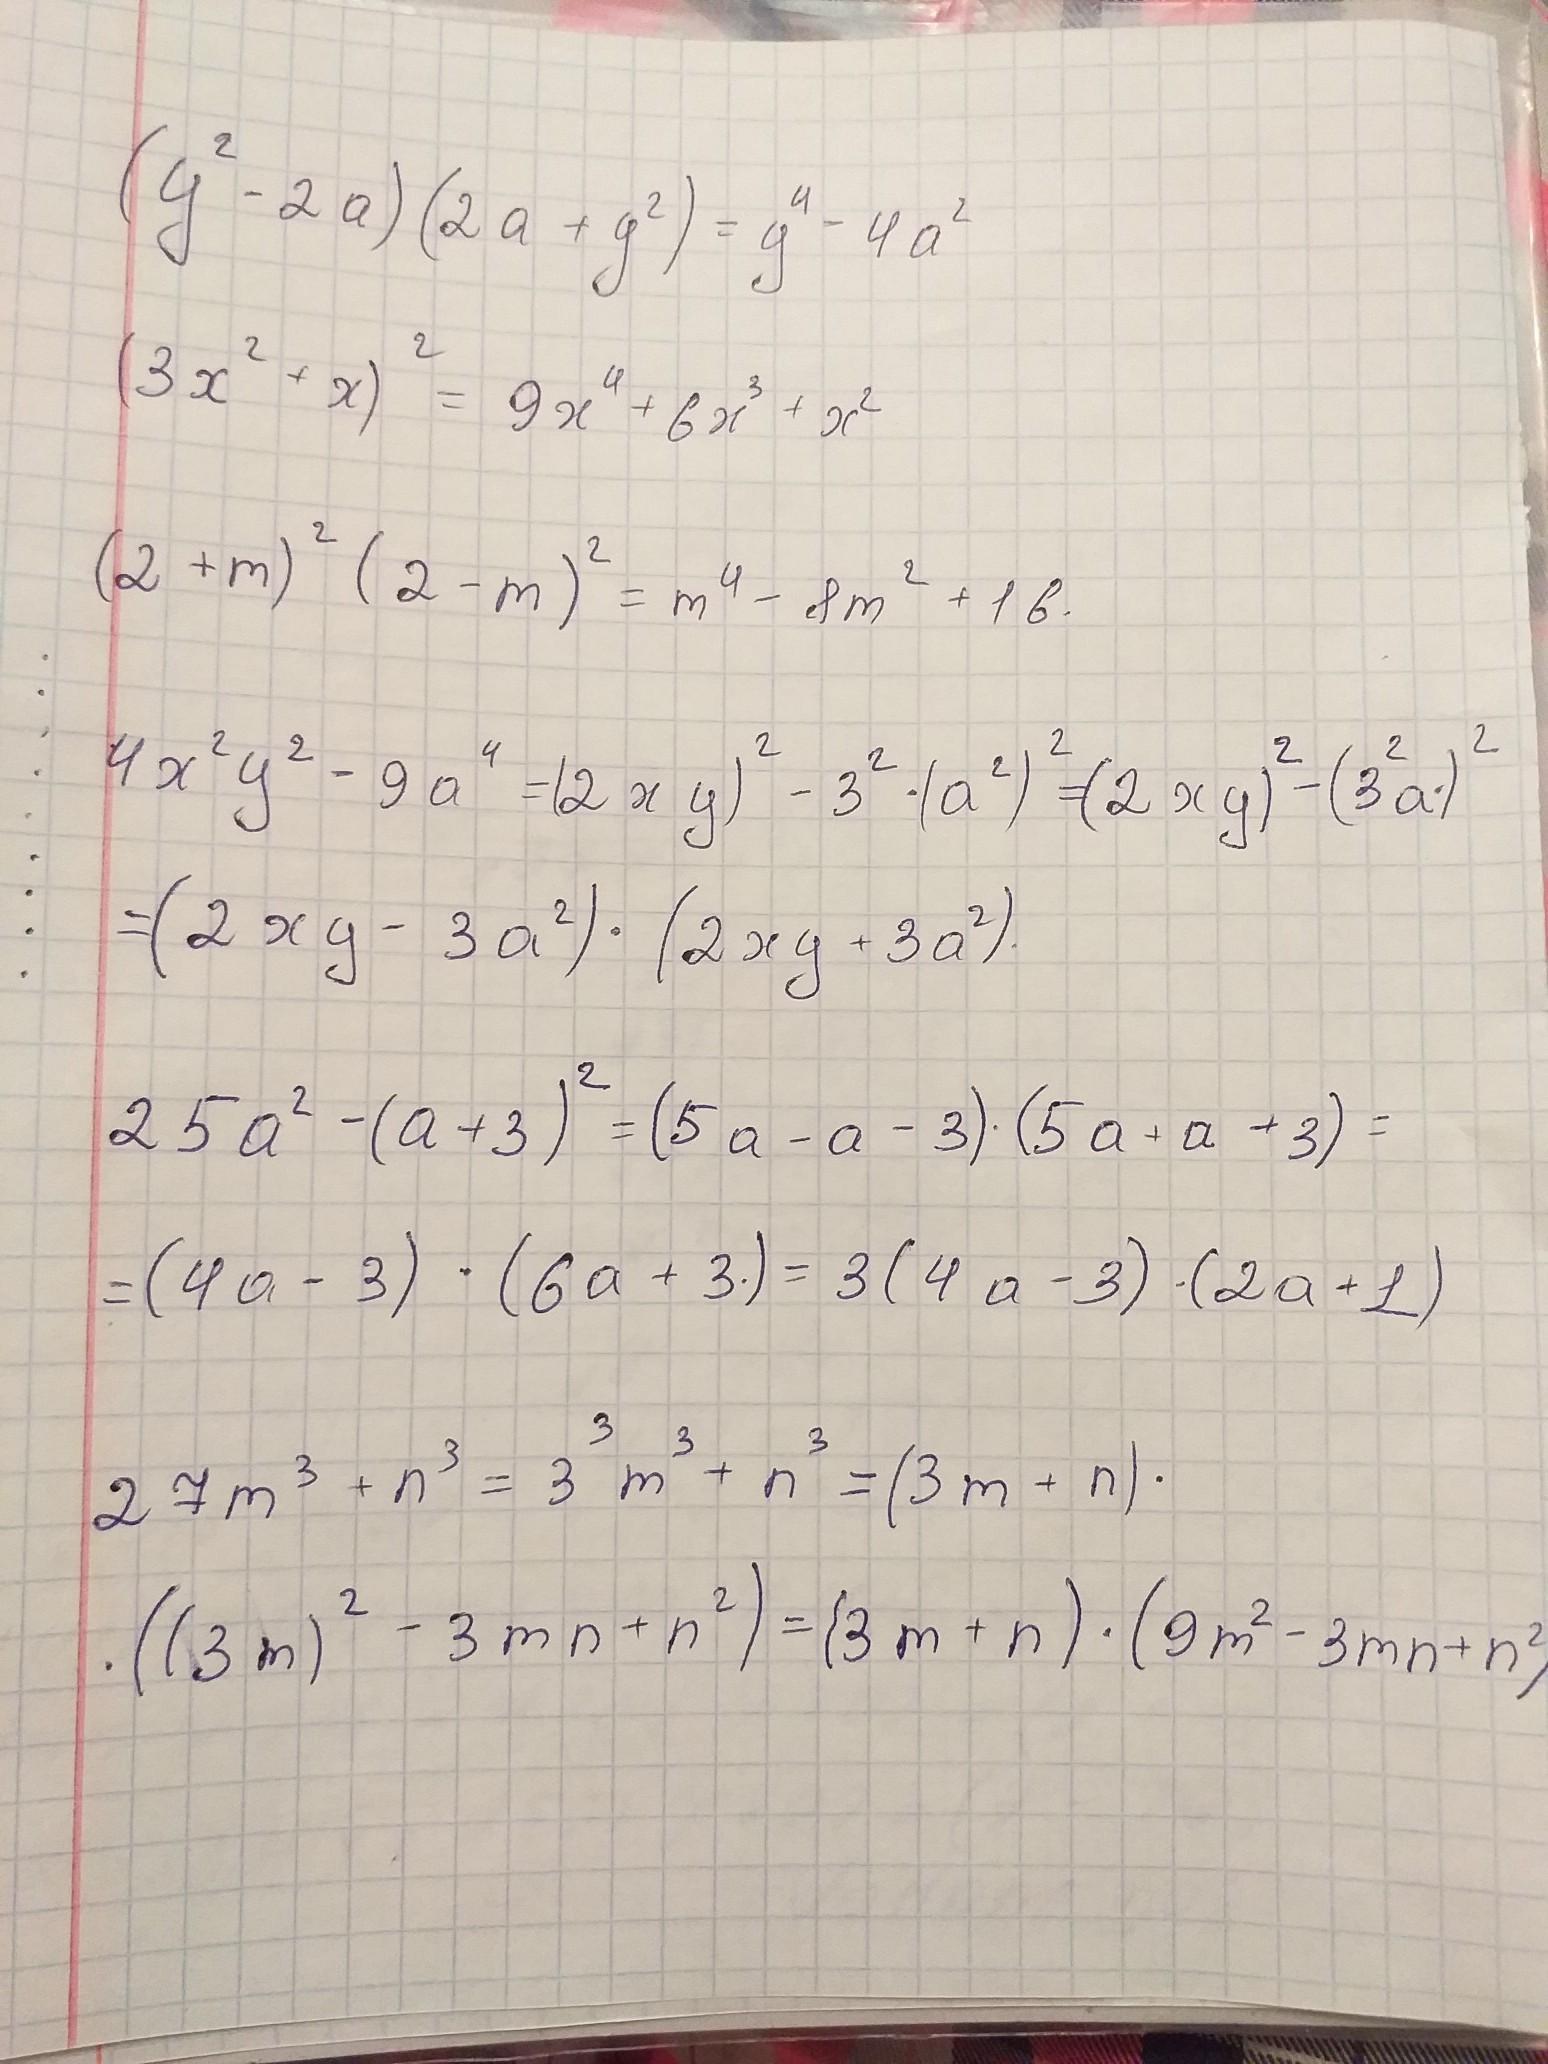 (y² - 2a)(2a + y²) = y⁴ - 4a²
(3x² + x)² = 9x⁴ + 6x³ + x²
(2 + m)² (2 - m)² = m⁴ - 8m² + 16.
4x²y² - 9a⁴ = (2xy)² - 3² · (a²)² = (2xy)² - (3²a)²
= (2xy - 3a²) · (2xy + 3a²).
25a² - (a + 3)² = (5a - a - 3) · (5a + a + 3) =
= (4a - 3) · (6a + 3) = 3(4a - 3) · (2a + 1)
27m³ + n³ = 3³m³ + n³ = (3m + n) ·
· ((3m)² - 3mn + n²) = (3m + n) · (9m² - 3mn + n²)